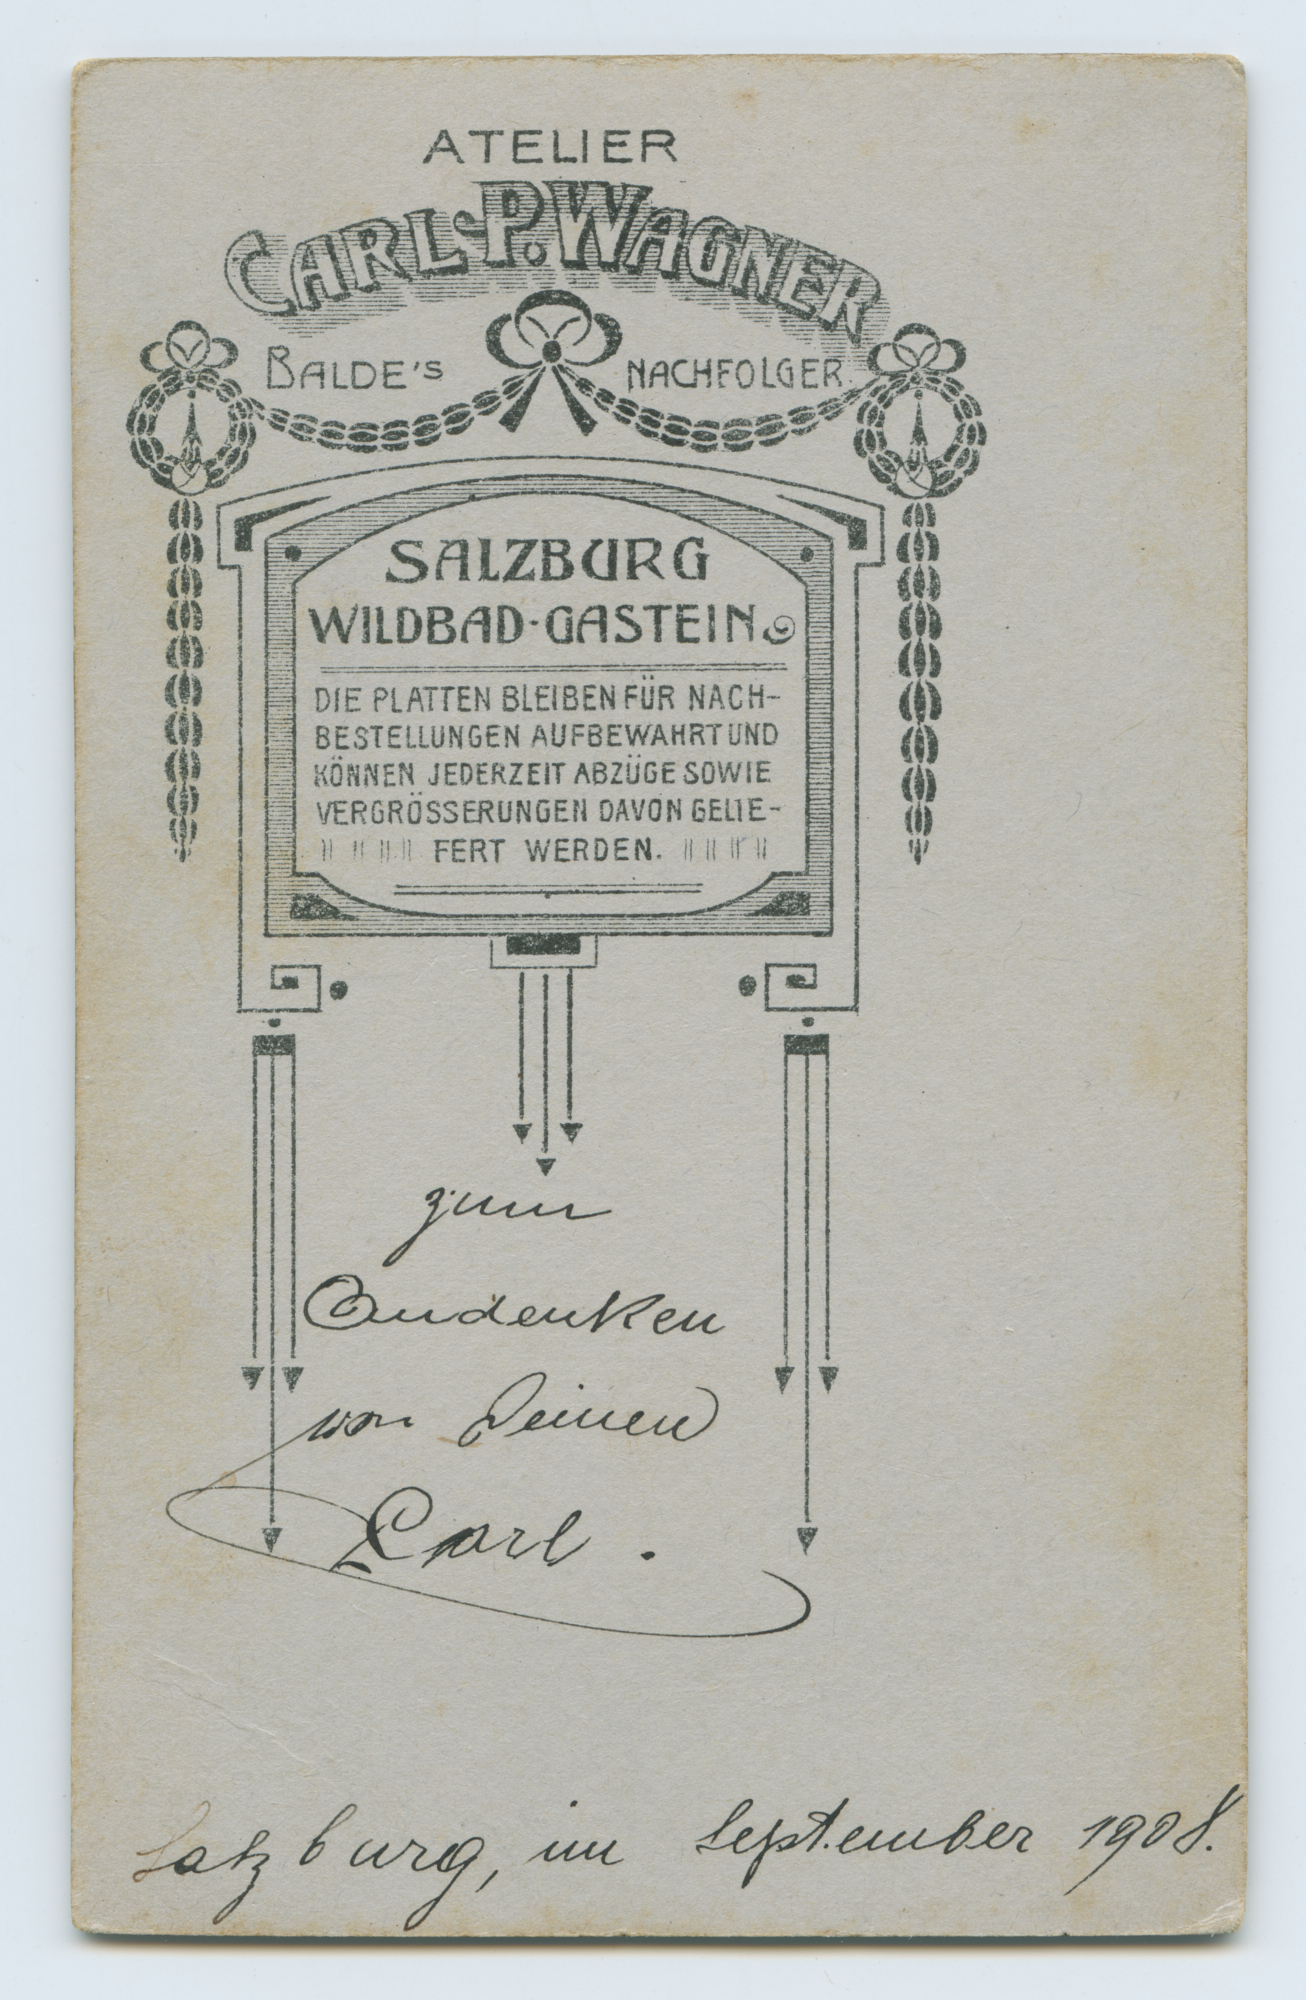 ATELIER
CARL P. WAGNER
BALDE'S NACHFOLGER.
SALZBURG
WILDBAD-GASTEIN
DIE PLATTEN BLEIBEN FÜR NACH-
BESTELLUNGEN AUFBEWAHRT UND
KÖNNEN JEDERZEIT ABZÜGE SOWIE
VERGRÖSSERUNGEN DAVON GELIE-
FERT WERDEN.
zum
Andenken
von Deinen
Carl.
Salzburg, im September 1908.